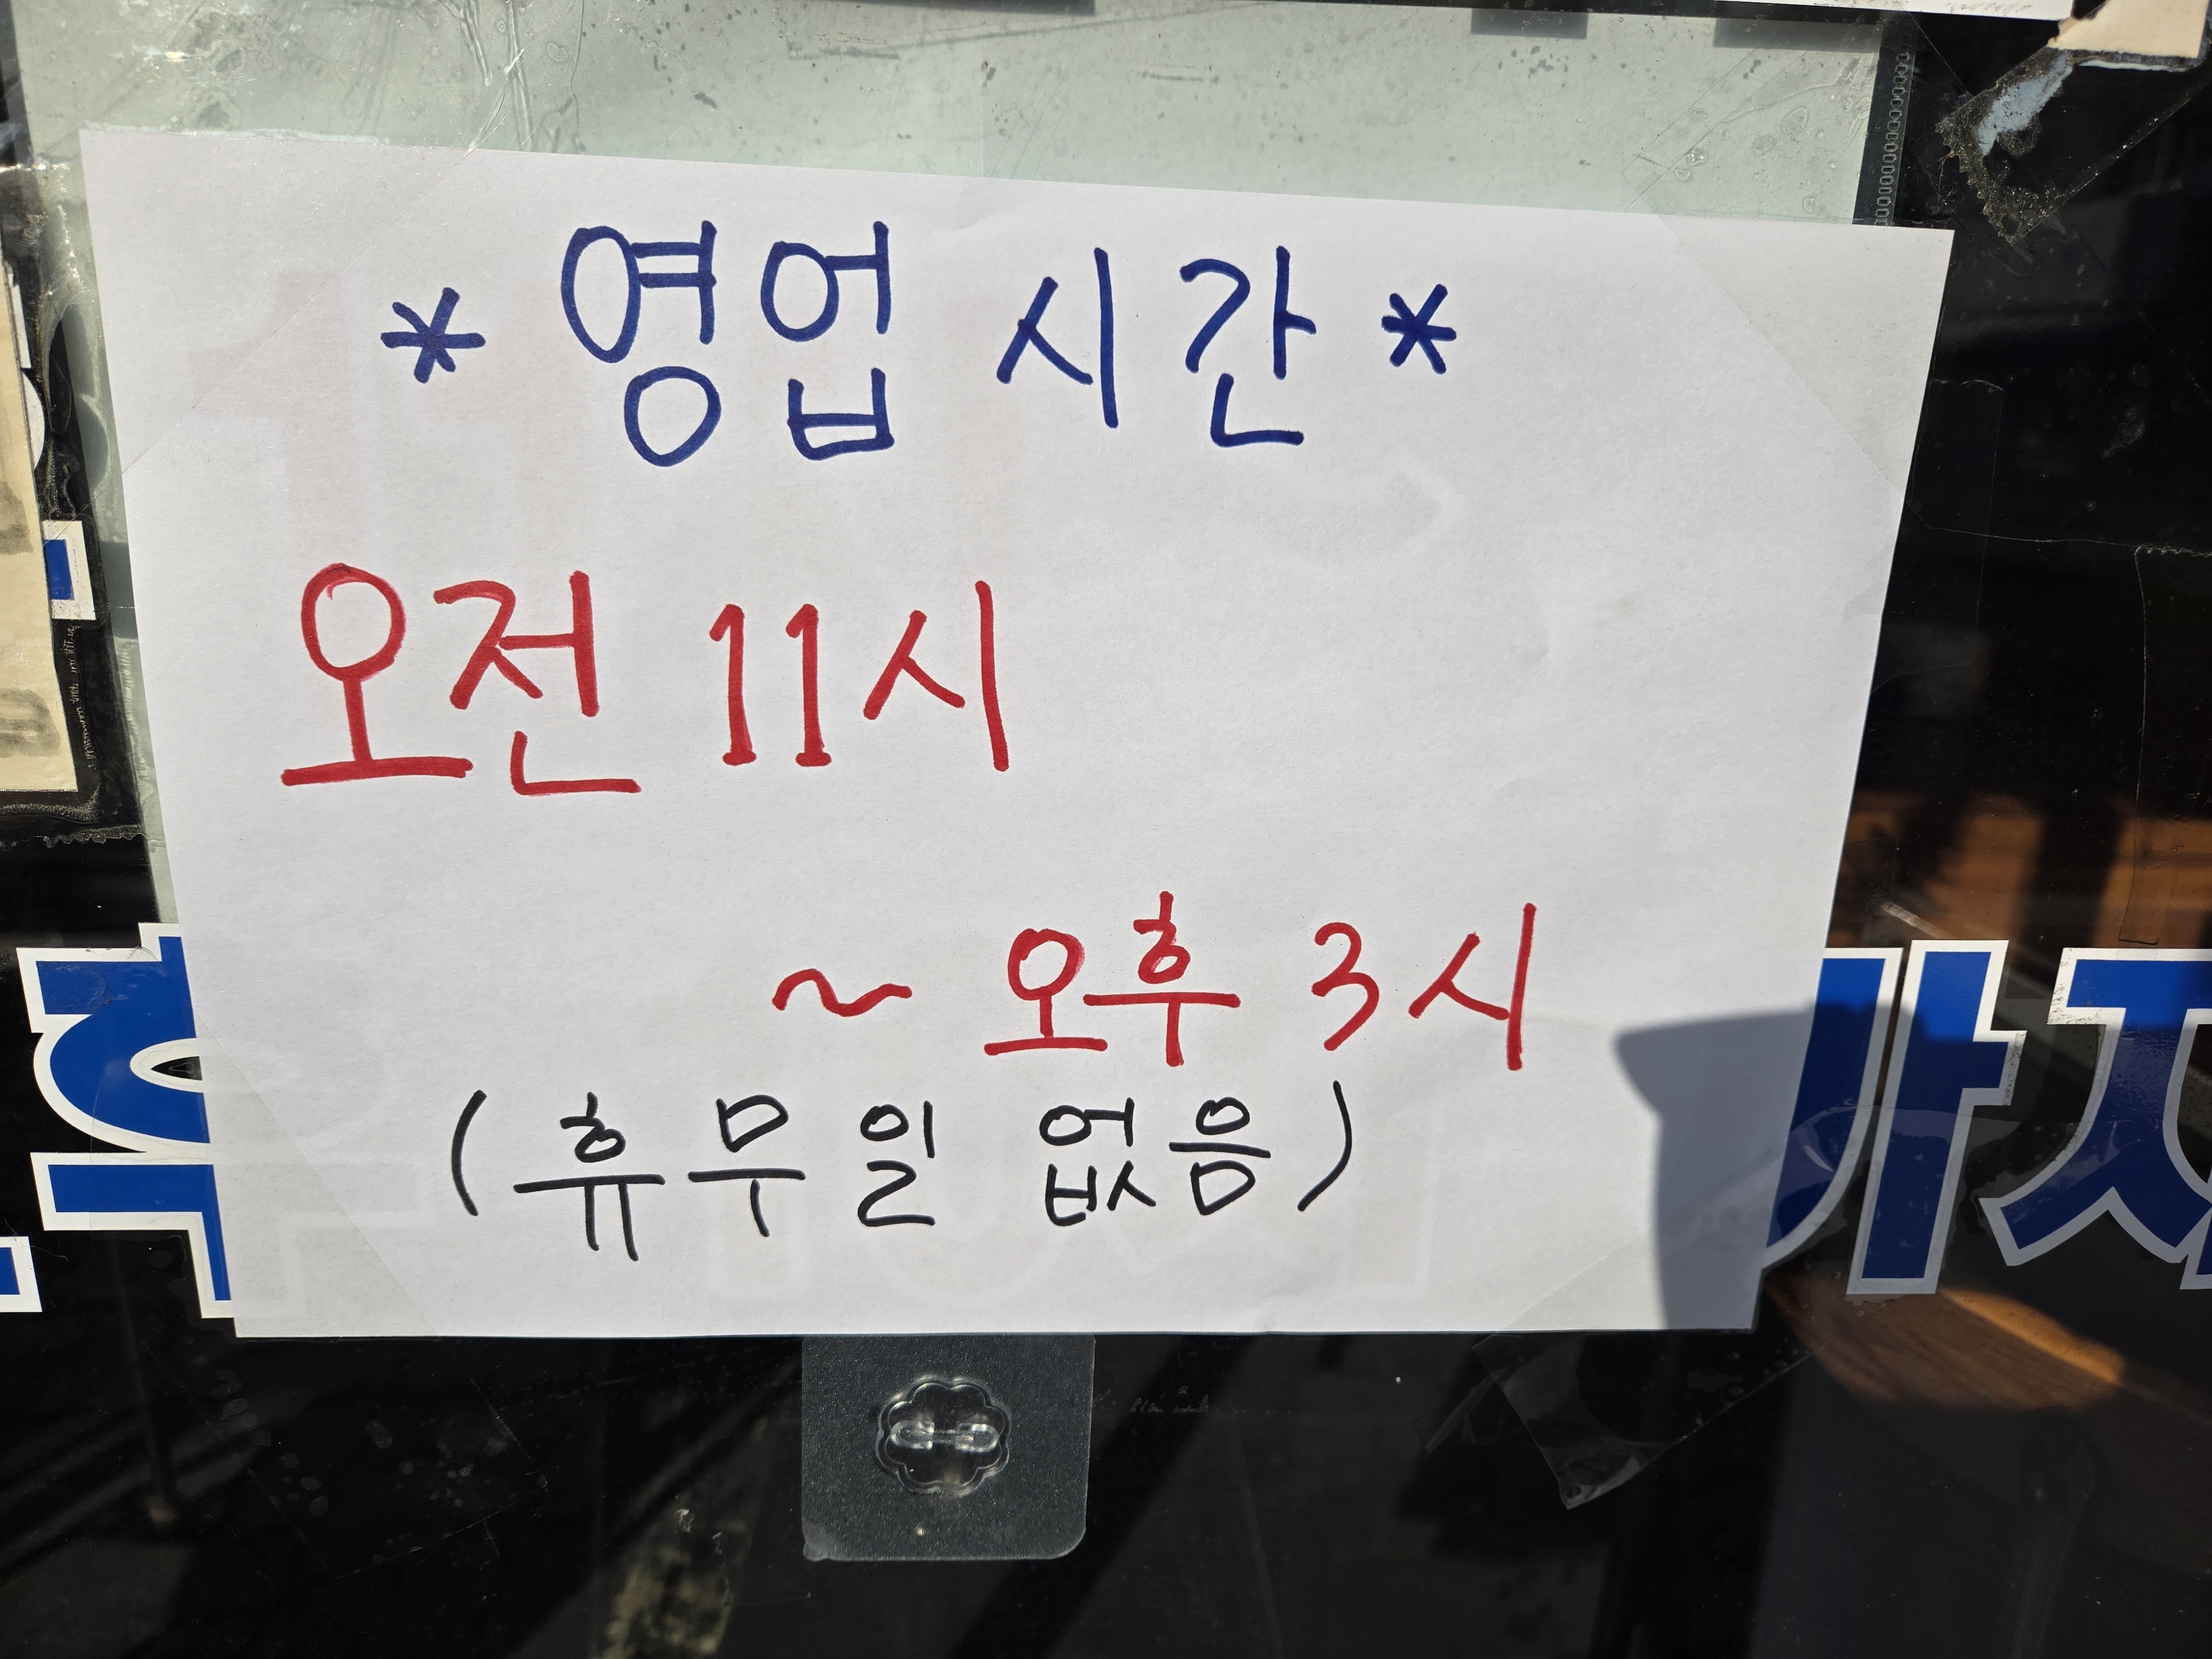 * 영업 시간 *
오전 11시
~ 오후 3시
(휴무일 없음)